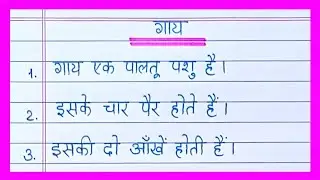 गाय
1. गाय एक पालतू पशु है।
2. इसके चार पैर होते हैं।
3. इसकी दो आँखें होती हैं।